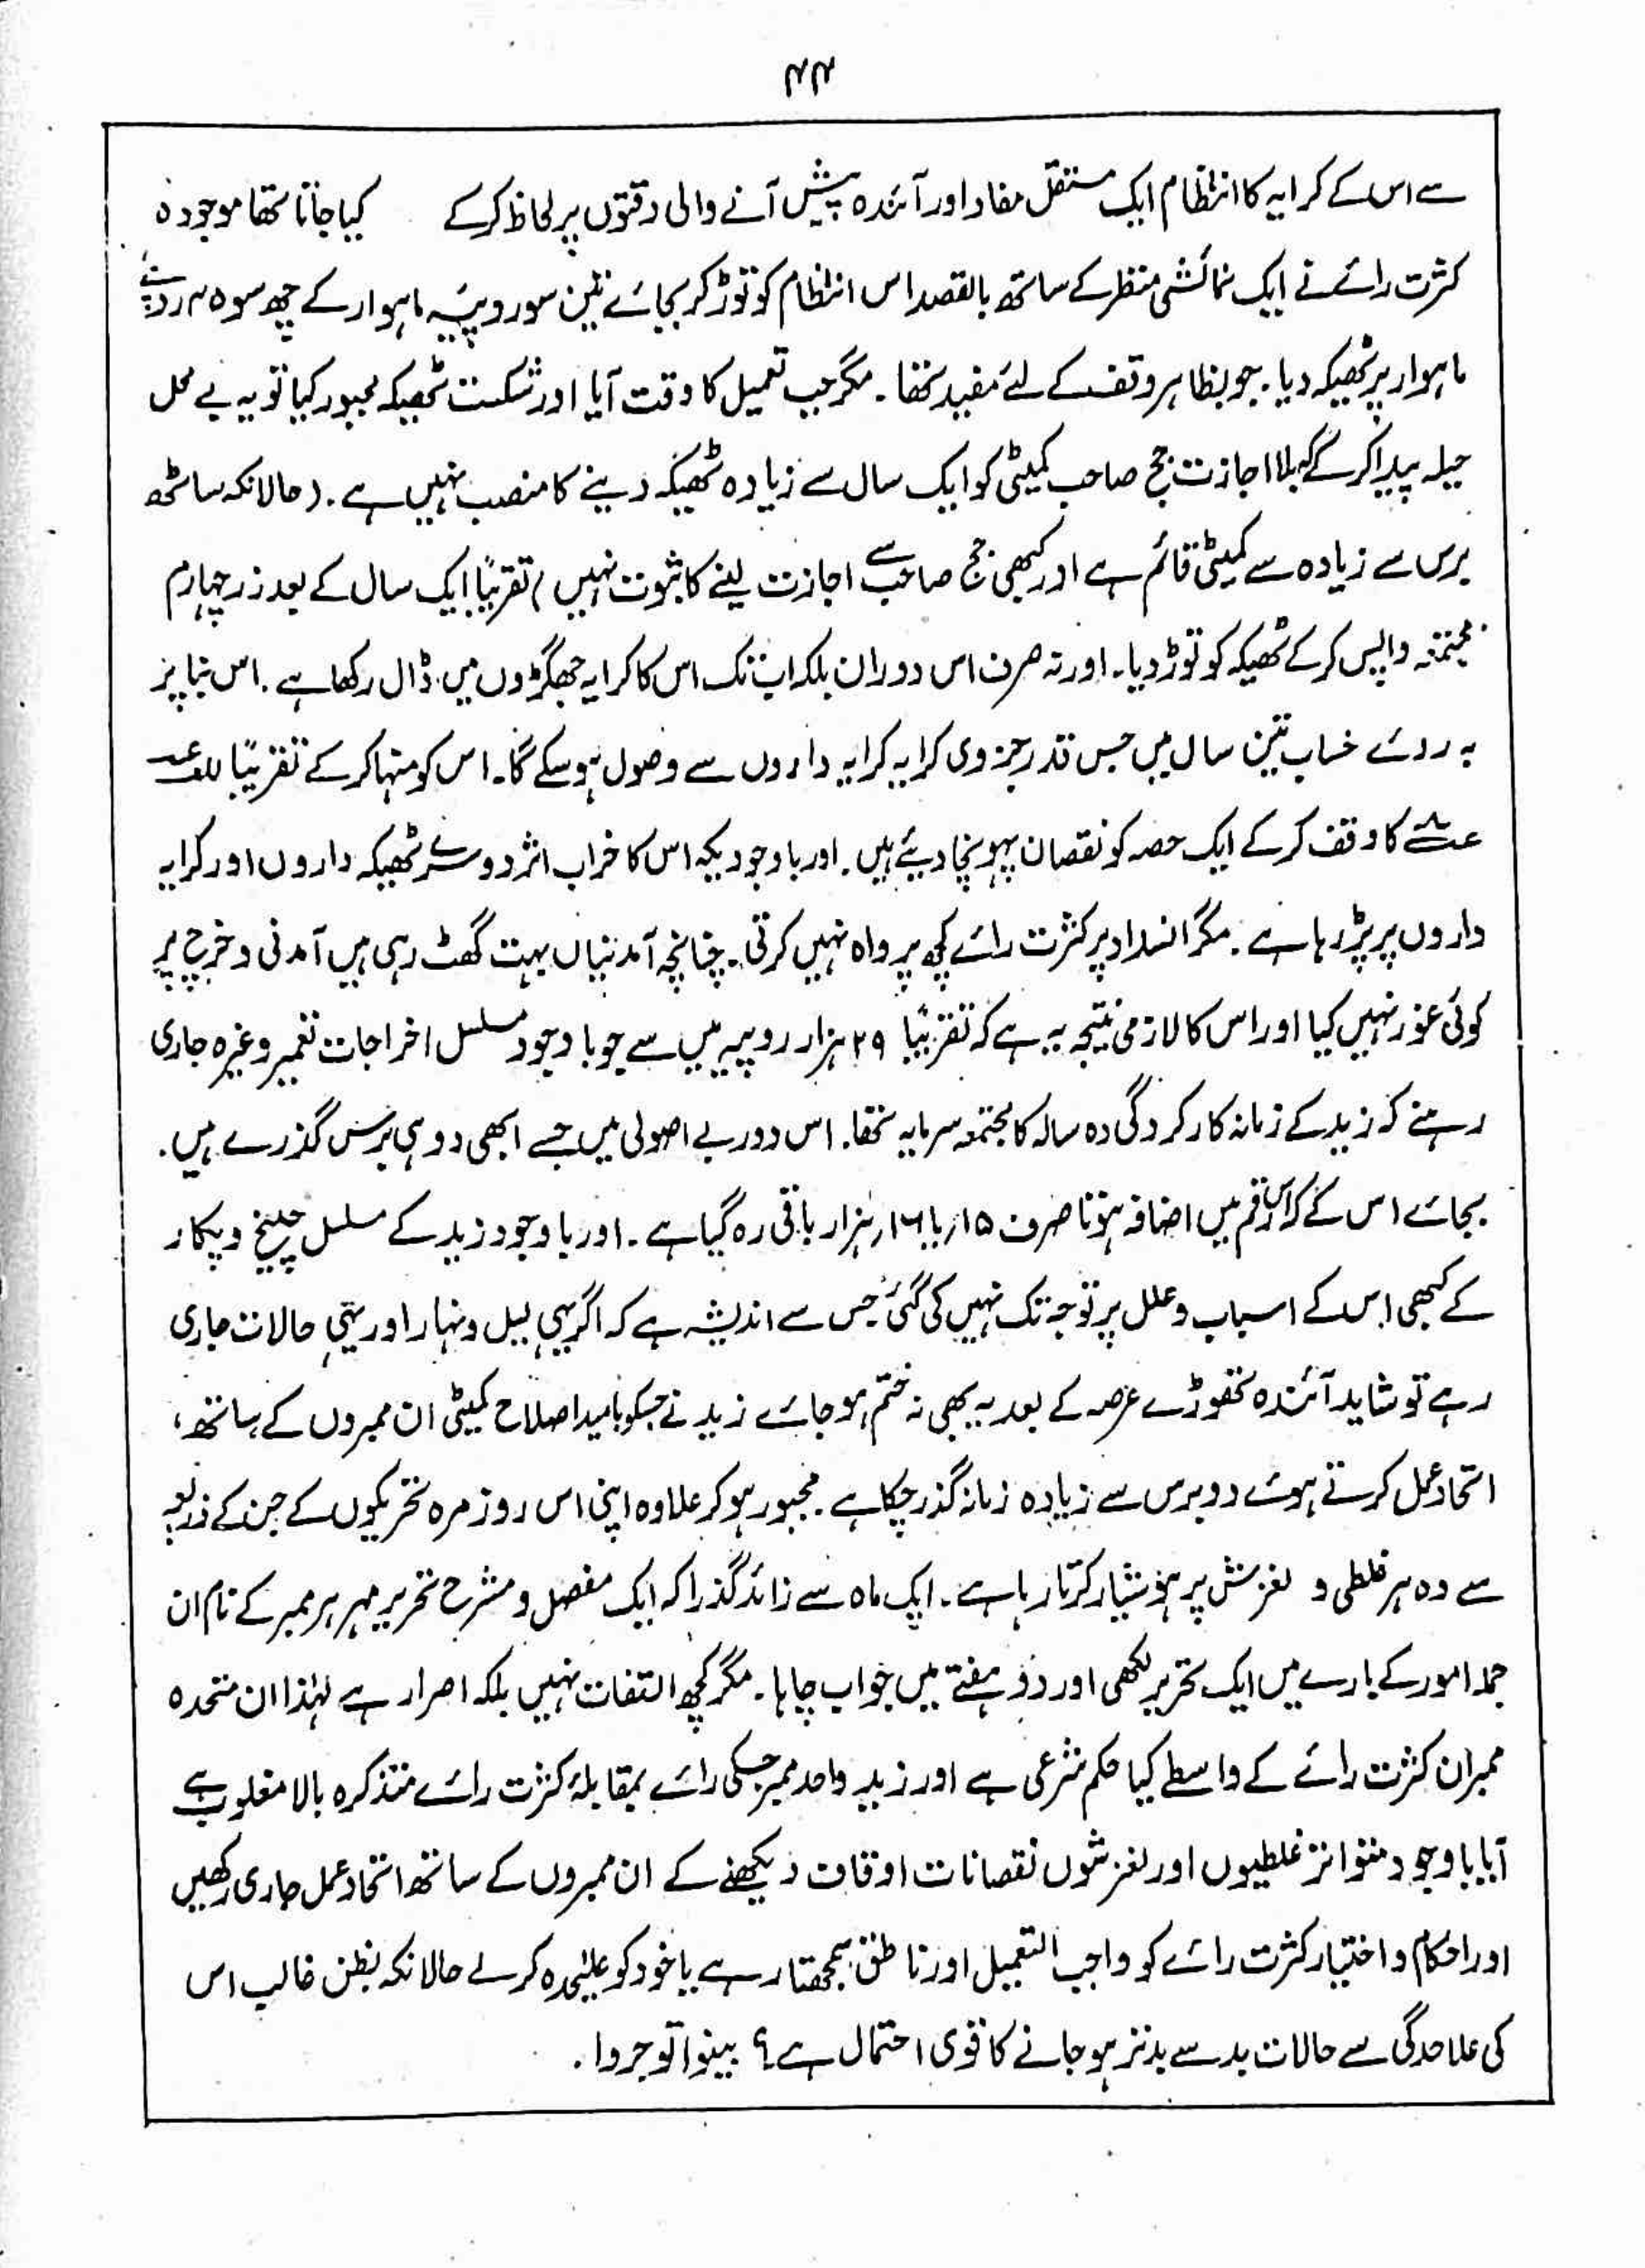 ۴۴
سے اس کے کرایہ کا انتظام ایک مستقل مفاد اور آئندہ پیش آنے والی دقتوں پر لحاظ کرکے کیا جاتا تھا موجودہ
کثرت رائے نے ایک نمائشی منظر کے ساتھ بالقصد اس انتظام کو توڑ کر بجائے تین سو روپیہ ماہوار کے چھ سو
ماہوار پر ٹھیکہ دیا۔ جو بظاہر وقف کے لئے مفید تھا۔ مگر جب تعمیل کا وقت آیا اور شکست ٹھیکہ مجبور کیا تو یہ بے محل
حیلہ پیدا کرکے کہ بلا اجازت جج صاحب کمیٹی کو ایک سال سے زیادہ ٹھیکہ دینے کا منصب نہیں ہے۔ (حالانکہ ساٹھ
برس سے زیادہ سے کمیٹی قائم ہے اور کبھی جج صاحب سے اجازت لینے کا ثبوت نہیں) تقریباً ایک سال کے بعد زر چہارم
مجتمعہ واپس کرکے ٹھیکہ کو توڑ دیا۔ اور نہ صرف اس دوران بلکہ اب تک اس کا کرایہ جھگڑوں میں ڈال رکھا ہے۔ اس بنا پر
بہ روئے حساب تین سال میں جس قدر جزوی کرایہ کرایہ داروں سے وصول ہوسکے گا۔ اس کو منہا کرکے تقریباً
کا وقف کرکے ایک حصہ کو نقصان پہونچا دیئے ہیں۔ اور باوجودیکہ اس کا خراب اثر دوسرے ٹھیکہ داروں اور کرایہ
داروں پر پڑ رہا ہے۔ مگر انسداد پر کثرت رائے کچھ پرواہ نہیں کرتی۔ چنانچہ آمدنیاں بہت گھٹ رہی ہیں آمدنی و خرچ پر
کوئی غور نہیں کیا اور اس کا لازمی نتیجہ یہ ہے کہ تقریباً ۲۹ ہزار روپیہ میں سے جو باوجود مسلسل اخراجات تعمیر وغیرہ جاری
رہنے کہ زید کے زمانہ کارکردگی دہ سالہ کا مجتمعہ سرمایہ تھا۔ اس دور بے اصولی میں جسے ابھی دو ہی برس گذرے ہیں۔
بجائے اس کے کہ اس رقم میں اضافہ ہوتا صرف ۱۵ر یا ۱۶ر ہزار باقی رہ گیا ہے۔ اور باوجود زید کے مسلسل چیخ و پکار
کے کبھی اس کے اسباب و علل پر توجہ تک نہیں کی گئی جس سے اندیشہ ہے کہ اگر یہی لیل و نہار اور یہی حالات جاری
رہے تو شاید آئندہ تھوڑے عرصہ کے بعد یہ بھی نہ ختم ہو جائے زید نے جسکو بامید اصلاح کمیٹی ان ممبروں کے ساتھ،
اتحاد عمل کرتے ہوئے دو برس سے زیادہ زمانہ گذر چکا ہے۔ مجبور ہوکر علاوہ اپنی اس روز مرہ تحریکوں کے جن کے ذریعہ
سے وہ ہر غلطی و لغزش پر ہوشیار کرتا رہا ہے۔ ایک ماہ سے زائد گذرا کہ ایک مفصل و مشرح تحریر مہر ہر ممبر کے نام ان
جملہ امور کے بارے میں ایک تحریر لکھی اور دو ہفتے میں جواب چاہا۔ مگر کچھ التفات نہیں بلکہ اصرار ہے لہٰذا ان متحدہ
ممبران کثرت رائے کے واسطے کیا حکم شرعی ہے اور زید واحد ممبر جسکی رائے بمقابلۂ کثرت رائے متذکرہ بالا مغلوب ہے
آیا باوجود متواتر غلطیوں اور لغزشوں نقصانات اوقاف دیکھنے کے ان ممبروں کے ساتھ اتحاد عمل جاری رکھیں
اور احکام و اختیار کثرت رائے کو واجب التعمیل اور ناطق سمجھتا رہے یا خود کو علیٰحدہ کرلے حالانکہ بظن غالب اس
کی علاحدگی سے حالات بد سے بدتر ہو جانے کا قوی احتمال ہے؟ بینوا توجروا۔